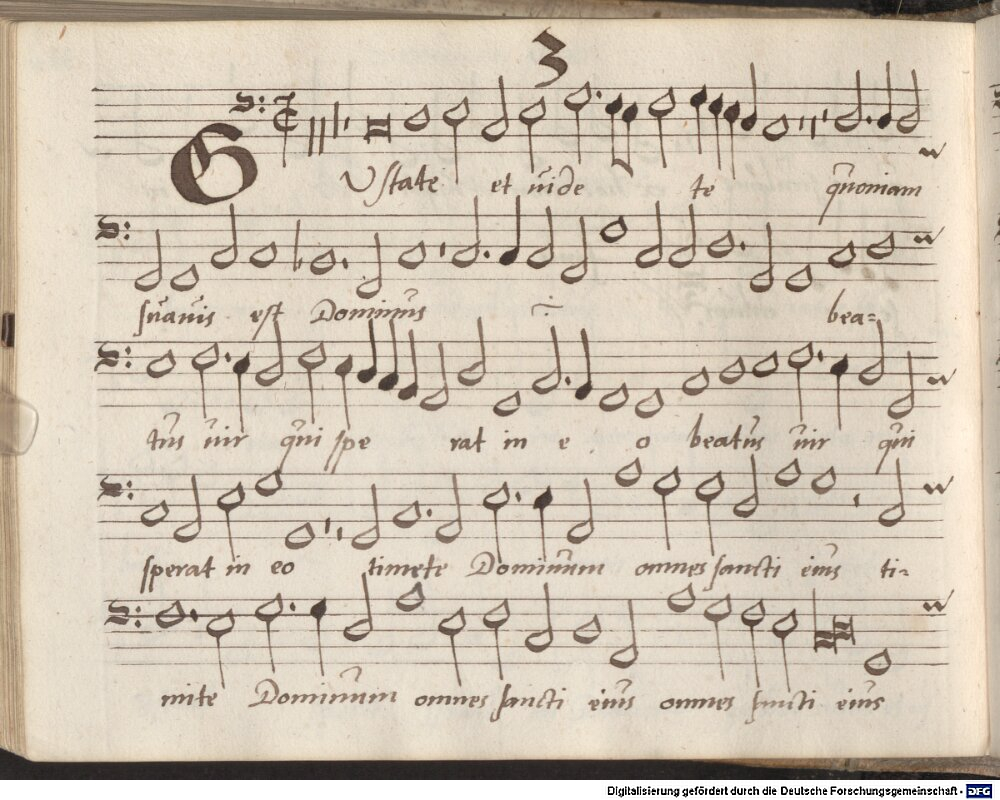 3
GUstate et uide te quoniam
suauis est Dominus ∻ bea=
tus uir qui spe rat in e o beatus uir qui
sperat in eo timete Dominum omnes sancti eius ti-
mite Dominum omnes sancti eius omnes sancti eius
Digitalisierung gefördert durch die Deutsche Forschungsgemeinschaft - DFG